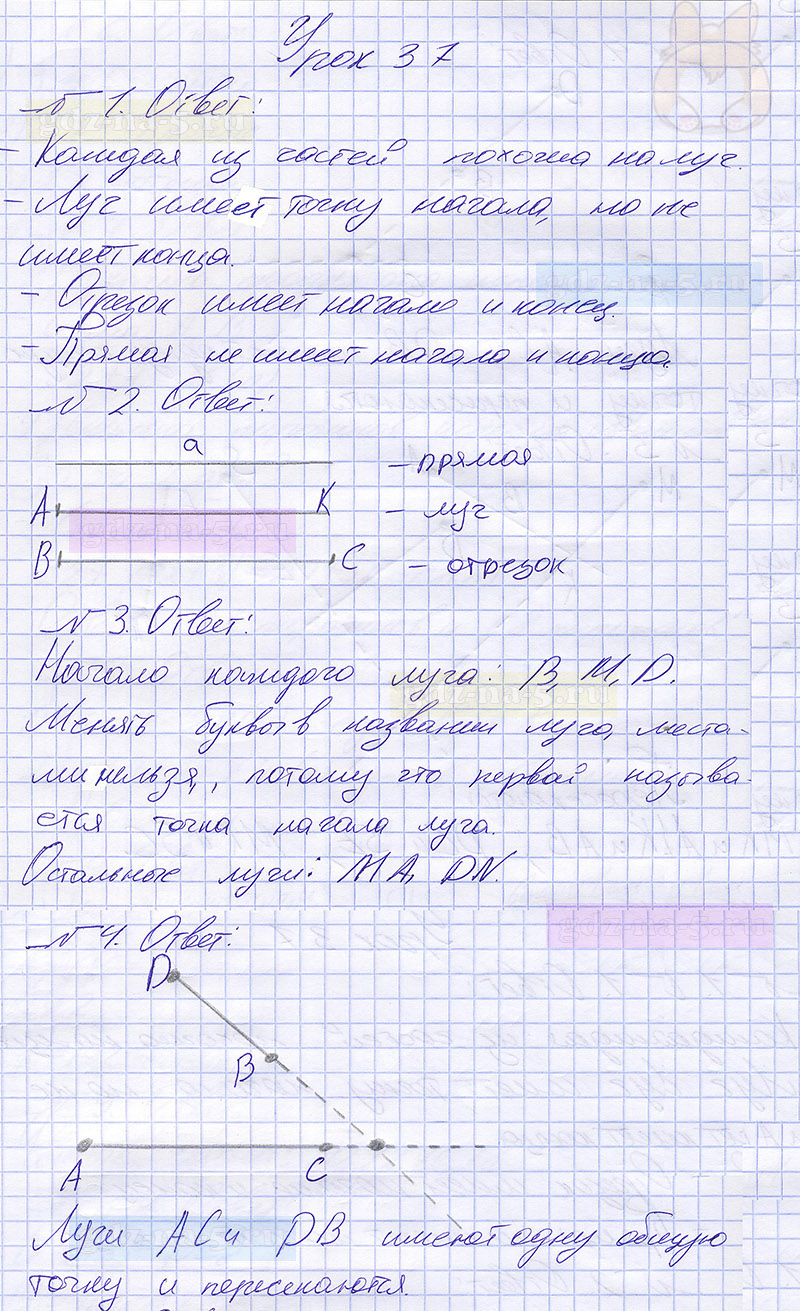 Урок 37
№ 1. Ответ:
- Каждая из частей похожа на луч.
- Луч имеет точку начала, но не
имеет конца.
- Отрезок имеет начало и конец.
- Прямая не имеет начала и конца.
№ 2. Ответ:
а
- прямая
А К - луч
В С - отрезок
№ 3. Ответ:
Начало каждого луча: В, М, D.
Менять буквы в названии луча, места-
ми нельзя, потому что первой называ-
ется точка начала луча.
Остальные лучи: МА, DN.
№ 4. Ответ:
D
В
А С
Лучи АС и DB имеют одну общую
точку и пересекаются.
gdz-na-5.ru
gdz-na-5.ru
gdz-na-5.ru
gdz-na-5.ru
gdz-na-5.ru